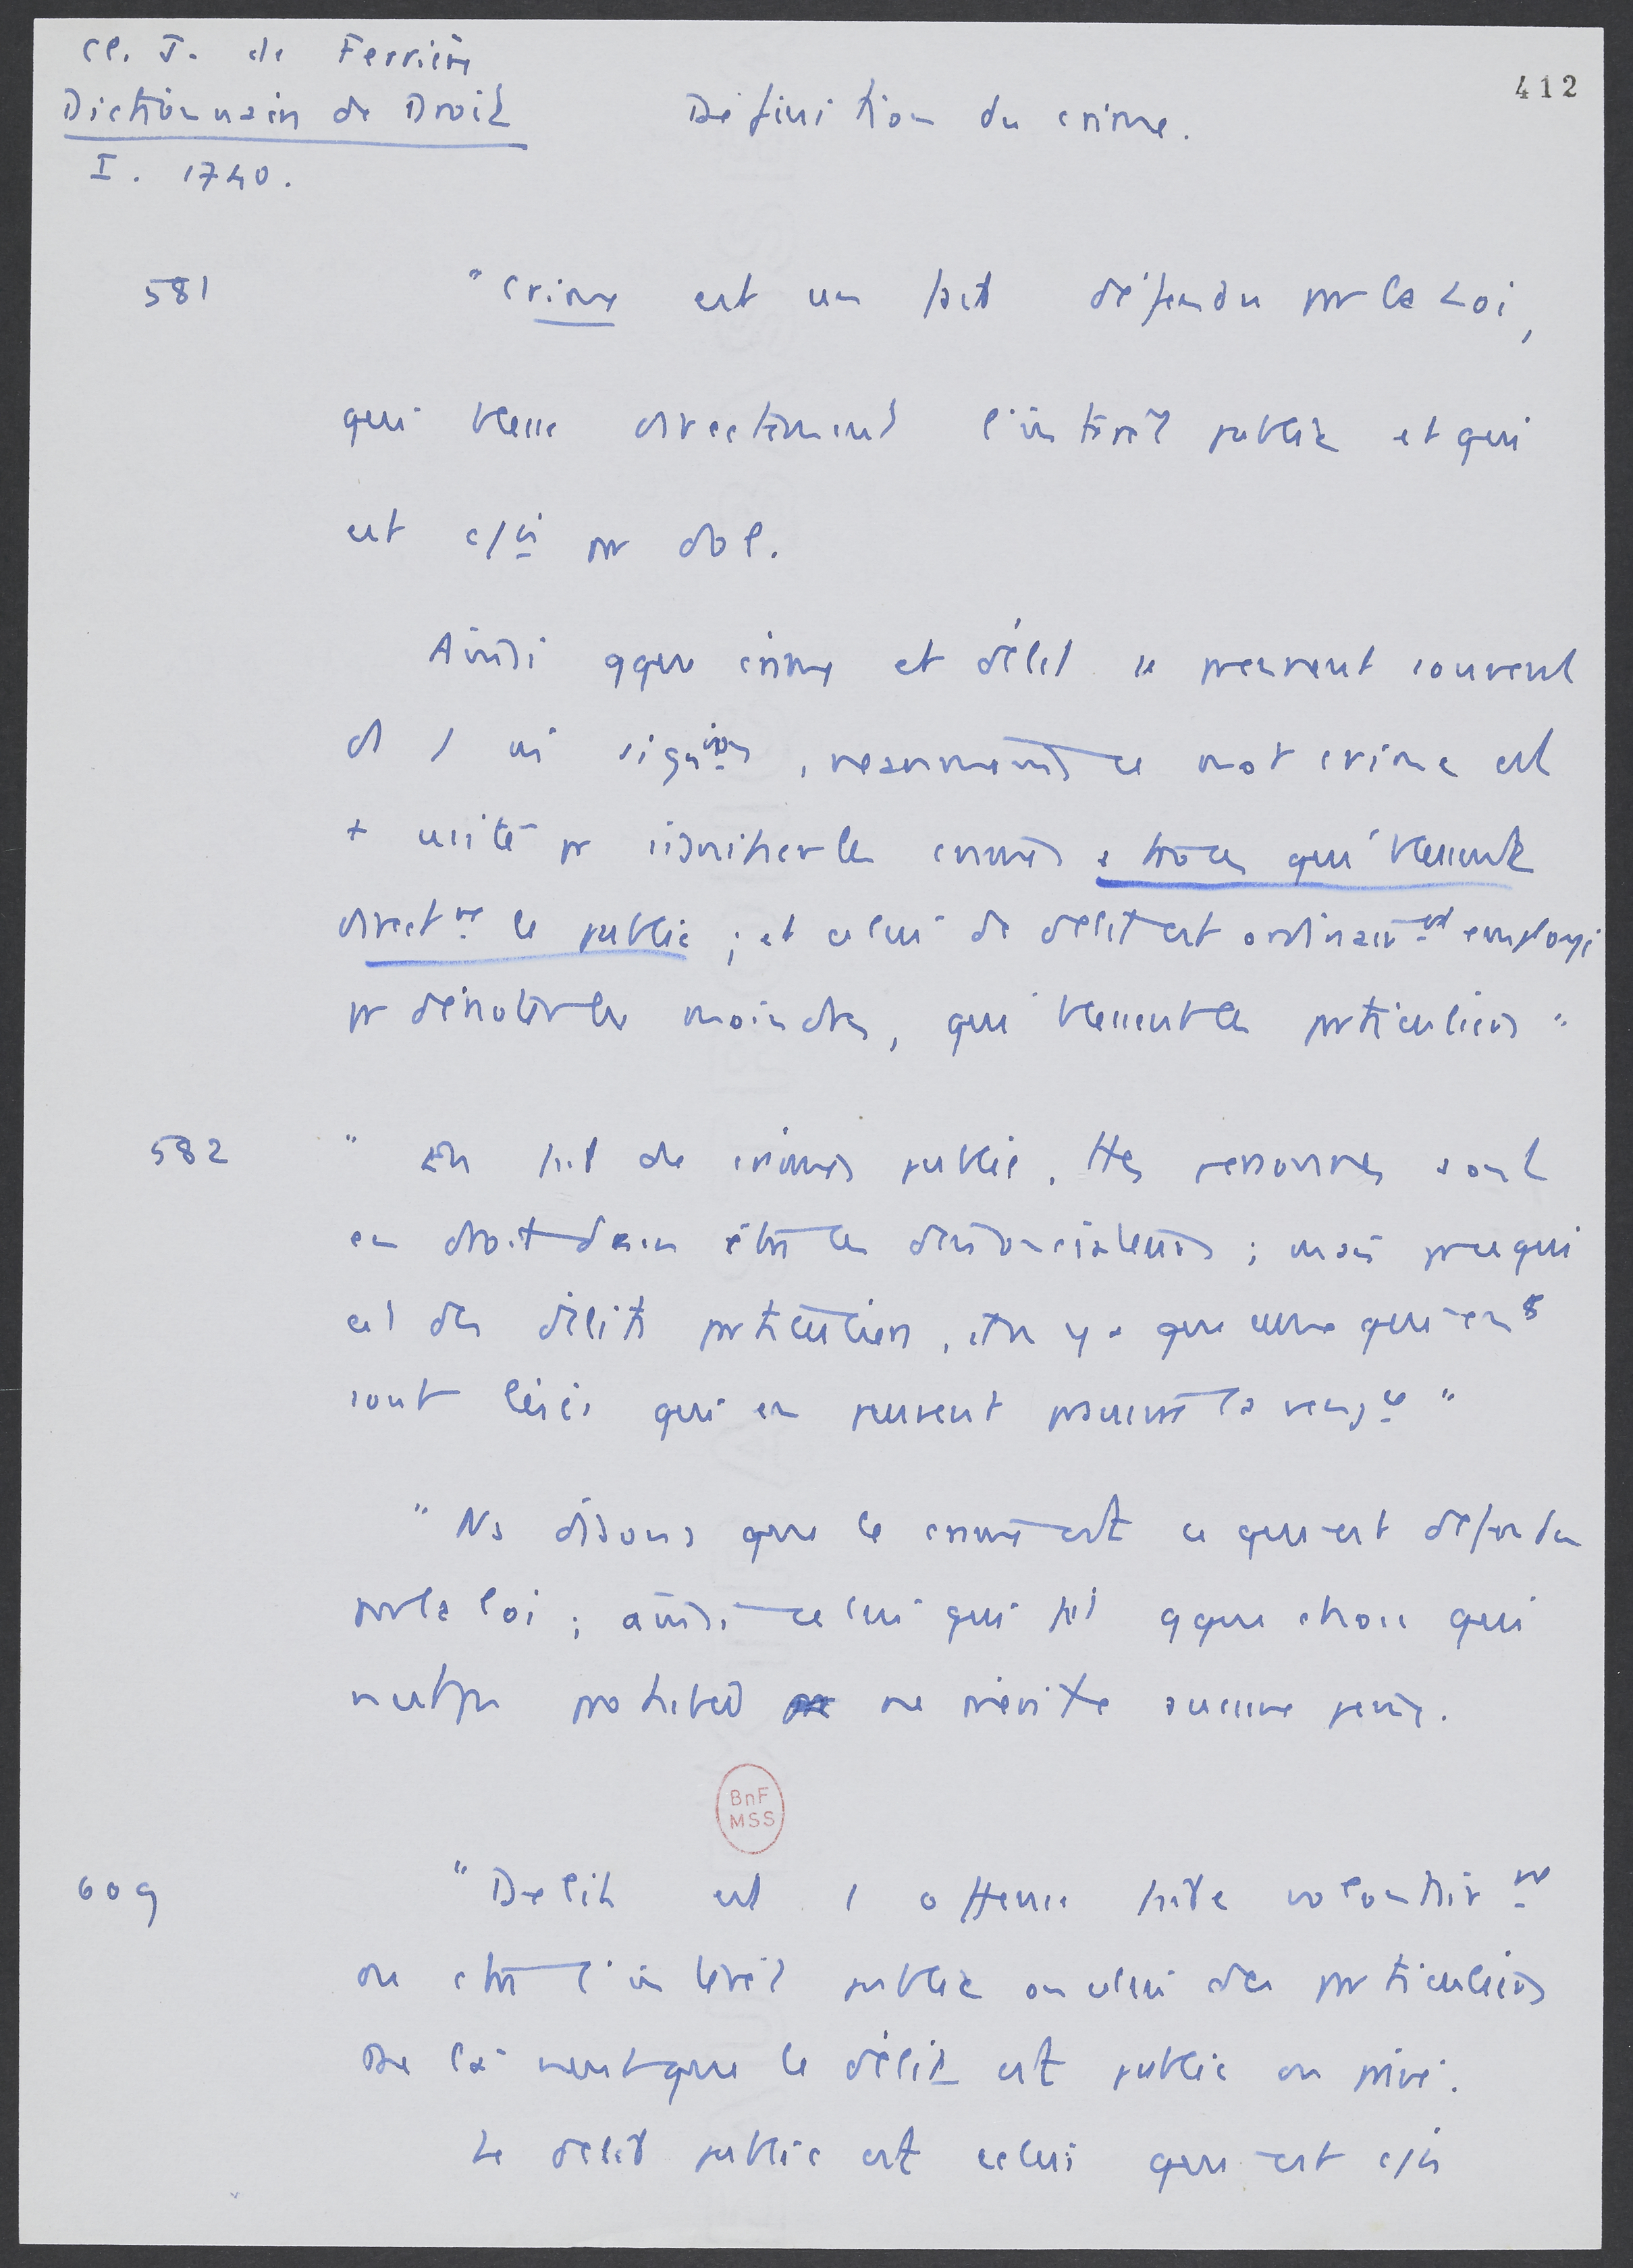 Cl. J. de Ferrière
Dictionnaire de Droit
I. 1740.
Définition du crime.
412
581
"Crime est un fait défendu par la Loi,
qui blesse directement l'intérêt public et qui
est c/is par dol.
Ainsi qque crime et délit se prennent souvent
ds 1 m̂ signion, néanmoins ce mot crime est
+ usité pr signifier les crimes atroces qui blessent
directmt le public ; et celui de délit est ordinairmt employé
pr dénoter les moindres, qui blessent les particuliers"
582
" En fait de crimes public, ttes personnes sont
en droit d'en être les dénonciateurs ; mais pr ce qui
est des délits particuliers, il n'y a que ceux qui en
sont lésés qui en peuvent poursuivre la vengce"
"Ns disons que le crime est ce qui est défendu
par la loi ; ainsi celui qui fait qque chose qui
n'est pas prohibé ne mérite aucune peine.
BnF
MSS
609
"Délit est 1 offense faite volontairmt
ou ctre l'intérêt public ou celui des particuliers
De là vient que le délit est public ou privé.
Le délit public est celui qui est c/is